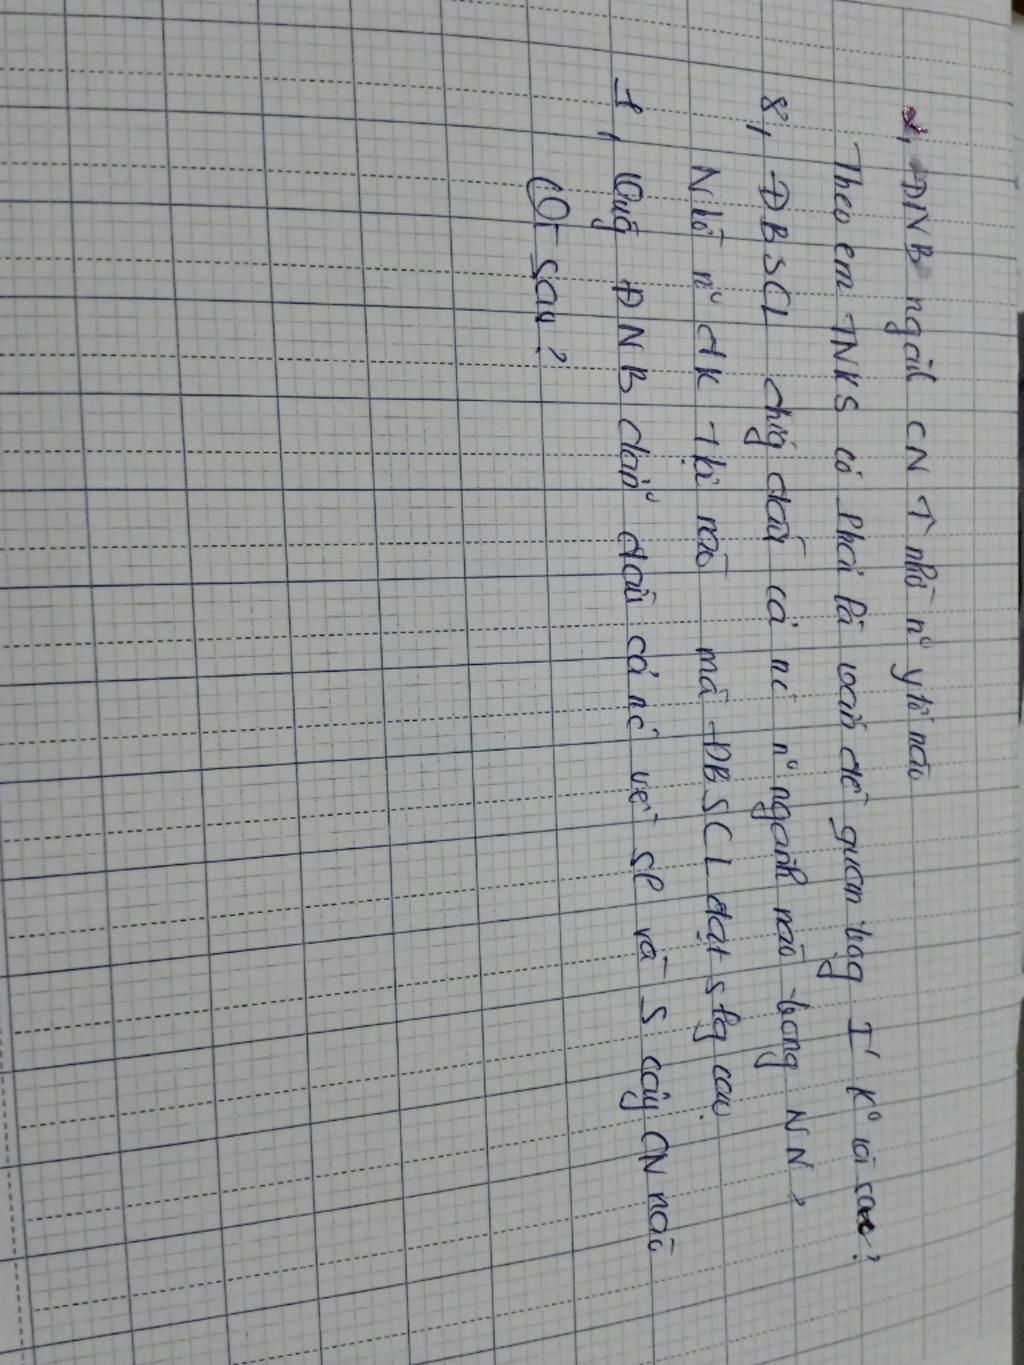 2, ĐNB ngàh CN ↑ nhờ nº ytố nào
Theo em TNKS có phải là vấn đề quan tọg I' Kº vì sao?
8, ĐBSCL đứg đầu cả nc nº ngành nào tong NN?
Nhờ nº đk tlợi nào mà ĐBSCL đạt slg cao
1, Vùg ĐNB dẫn đầu cả nc về SL và S cây CN nào
Vì sao?